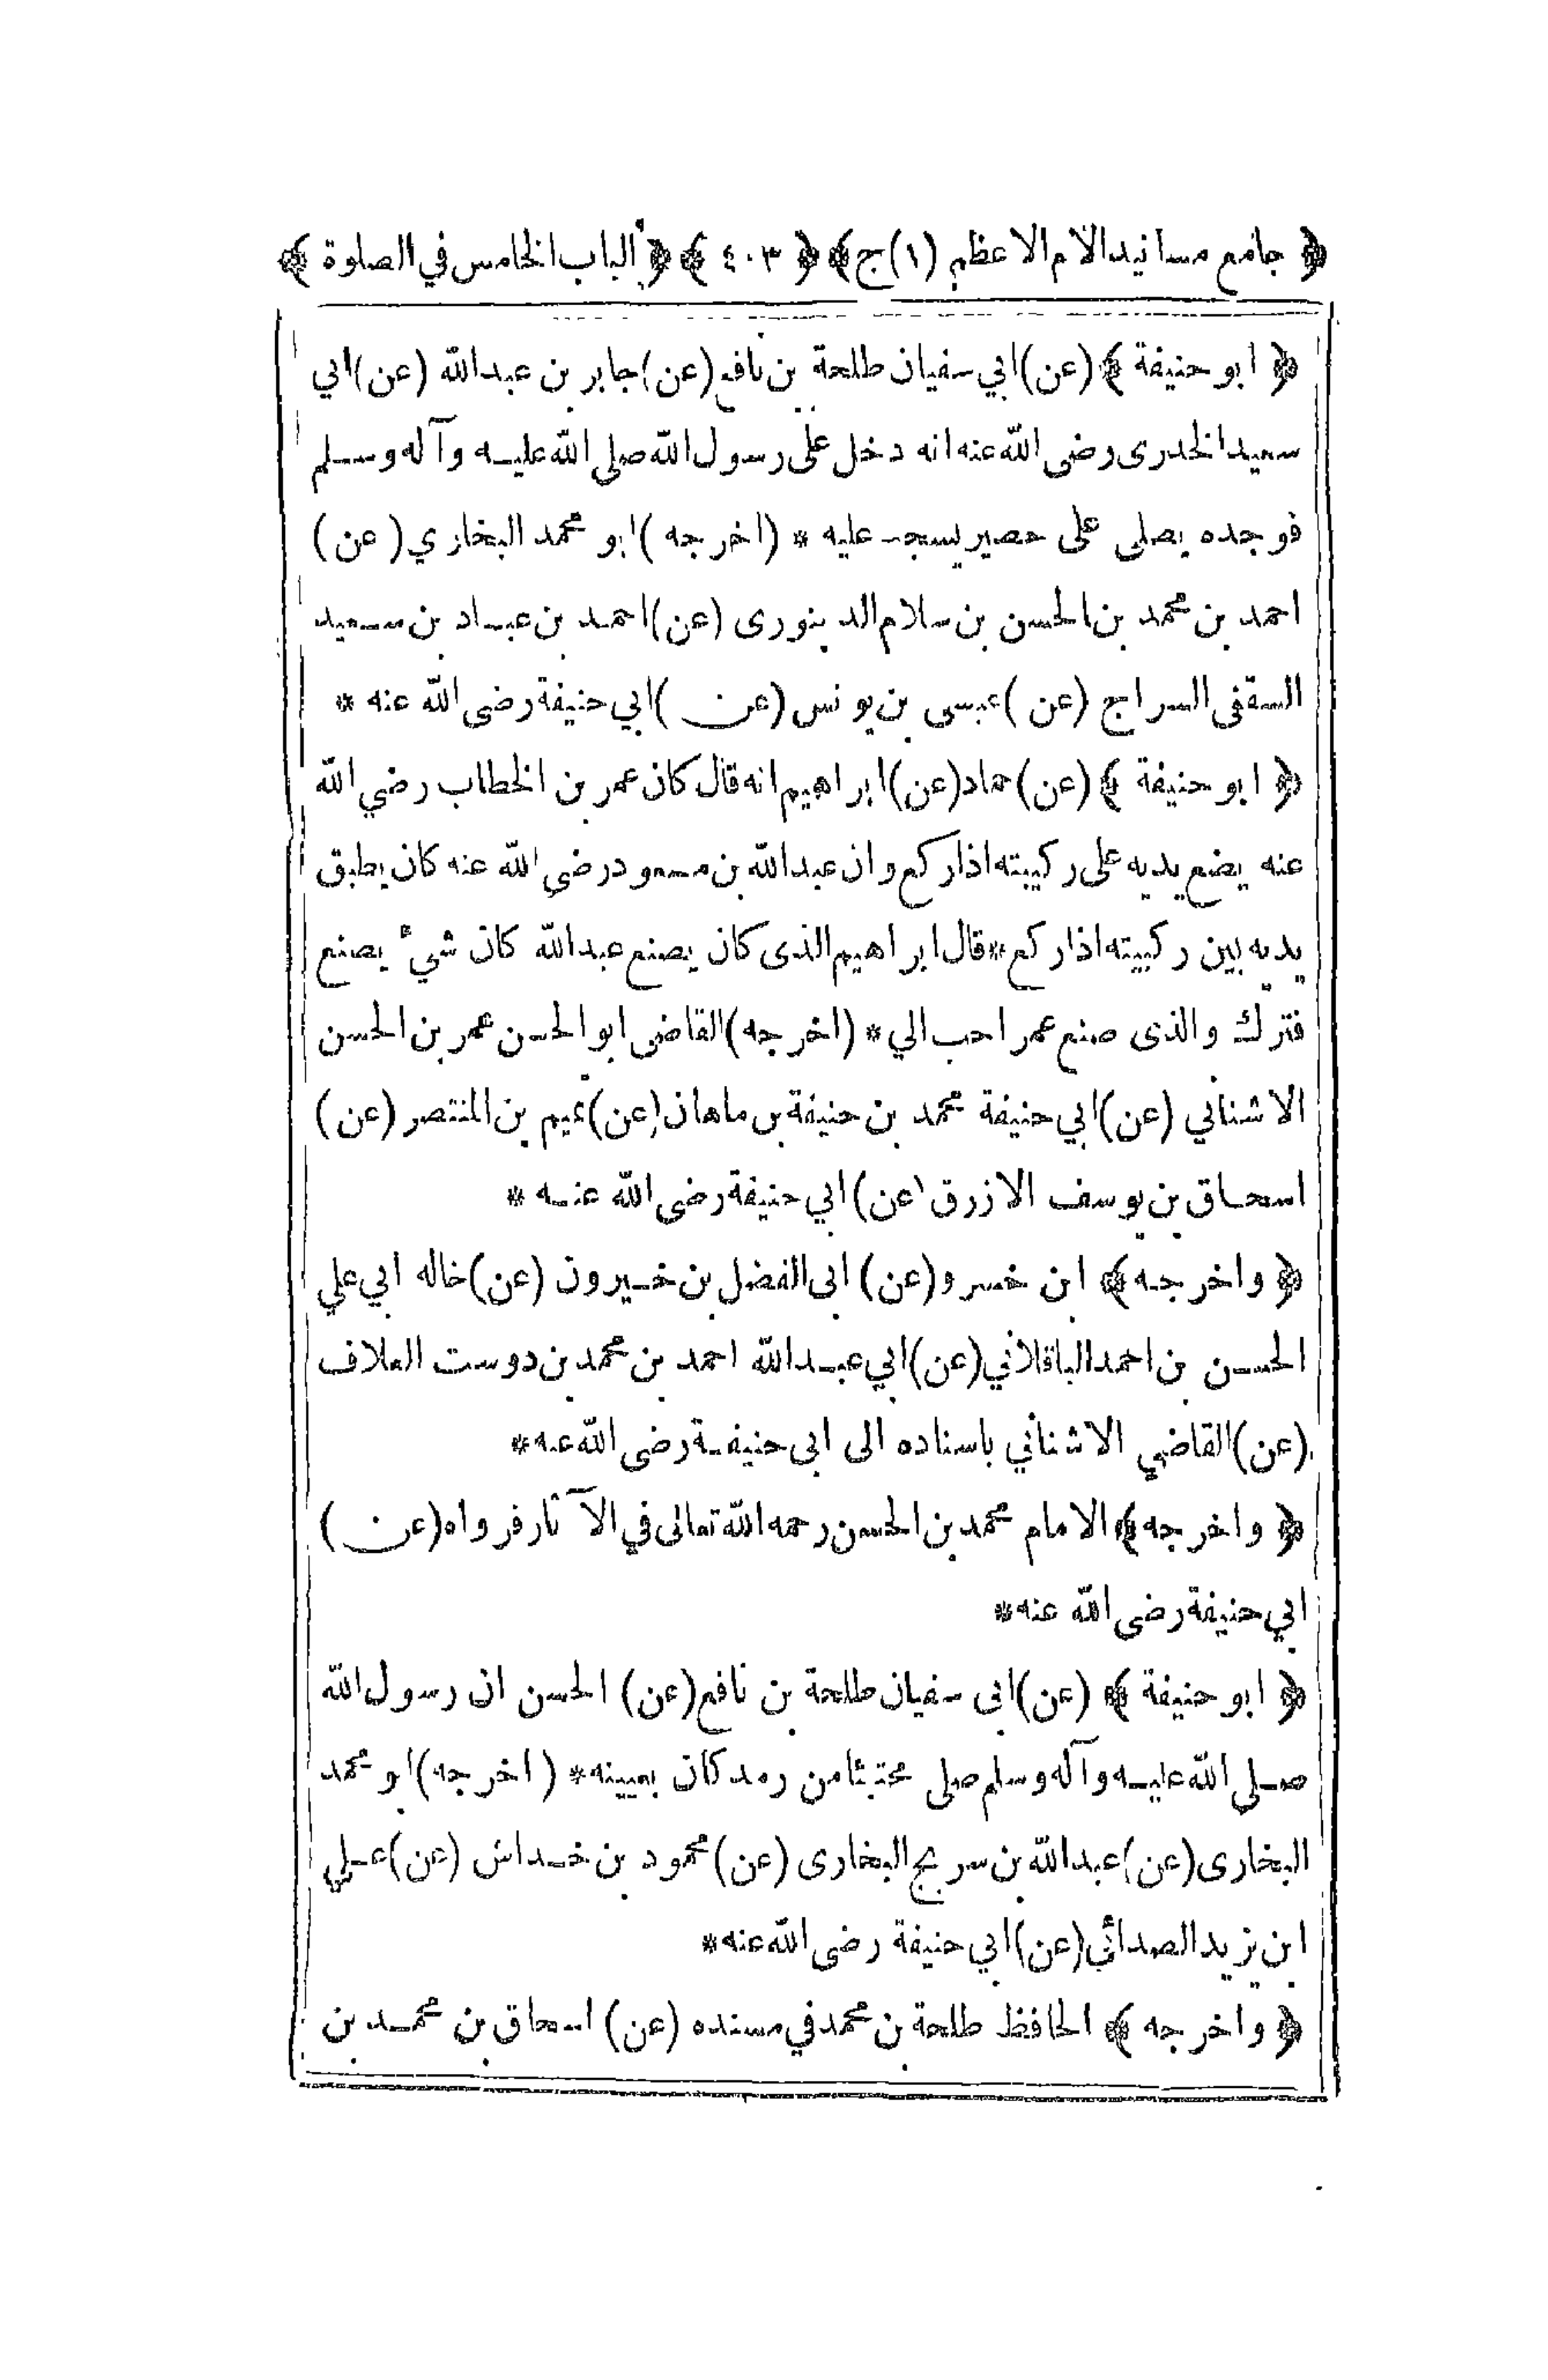 ﴿ جامع مسانيد الامام الاعظم (١) ج ﴾ ﴿ ٤٠٣ ﴾ ﴿ الباب الخامس في الصلوة ﴾
﴿ ابو حنيفة ﴾ (عن) ابي سفيان طلحة بن نافع (عن) جابر بن عبدالله (عن) ابي
سعيد الخدرى رضى الله عنه انه دخل على رسول الله صلى الله عليه وآله وسلم
فوجده يصلى على حصير يسجد عليه * (اخرجه) ابو محمد البخاري (عن)
احمد بن محمد بن الحسن بن سلام الدينورى (عن) احمد بن عباد بن سعيد
السقفى السراج (عن) عيسى بن يونس (عن) ابي حنيفة رضى الله عنه *
﴿ ابو حنيفة ﴾ (عن) حماد (عن) ابراهيم انه قال كان عمر بن الخطاب رضي الله
عنه يضع يديه على ركبيته اذا ركع وان عبدالله بن مسعود رضي الله عنه كان يطبق
يديه بين ركبيته اذا ركع * قال ابراهيم الذى كان يصنع عبدالله كان شيء يصنع
فترك والذى صنع عمر احب الي * (اخرجه) القاضى ابو الحسن عمر بن الحسن
الاشناني (عن) ابي حنيفة محمد بن حنيفة بن ماهان (عن) تميم بن المنتصر (عن)
اسحاق بن يوسف الازرق (عن) ابي حنيفة رضى الله عنه *
﴿ واخرجه ﴾ ابن خسرو (عن) ابى الفضل بن خيرون (عن) خاله ابي علي
الحسن بن احمد الباقلاني (عن) ابي عبدالله احمد بن محمد بن دوست العلاف
(عن) القاضي الاشناني باسناده الى ابى حنيفة رضى الله عنه *
﴿ واخرجه ﴾ الامام محمد بن الحسن رحمه الله تعالى في الآثار فرواه (عن)
ابي حنيفة رضى الله عنه *
﴿ ابو حنيفة ﴾ (عن) ابى سفيان طلحة بن نافع (عن) الحسن ان رسول الله
صلى الله عليه وآله وسلم صلى محتبئا من رمد كان بعينه * (اخرجه) ابو محمد
البخارى (عن) عبدالله بن سريج البخارى (عن) محمود بن خداش (عن) علي
ابن يزيد الصدائي (عن) ابي حنيفة رضى الله عنه *
﴿ واخرجه ﴾ الحافظ طلحة بن محمد في مسنده (عن) اسحاق بن محمد بن